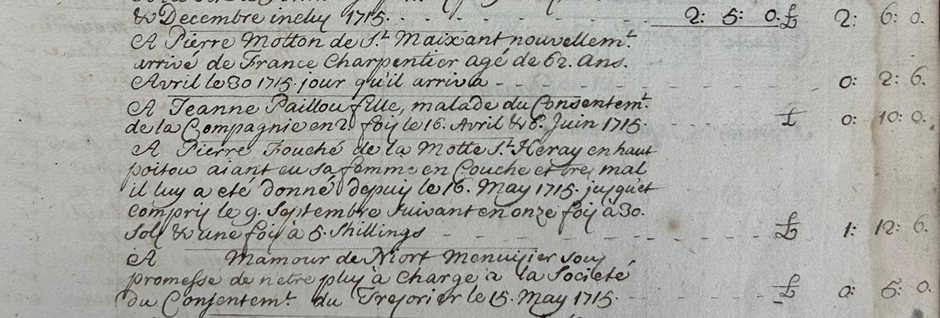 & Decembre inclus 1715. 2: 5: 0. £ 2: 6: 0.
A Pierre Motton de St. Maixant nouvellemt.
arrivé de France Charpentier agé de 62. Ans.
Avril le 30 1715. jour qu'il arriva - 0: 2: 6.
A Jeanne Paillou fille, malade du Consentemt.
de la Compagnie en 2. fois le 16. Avril & 6. Juin 1715. £ 0: 10: 0.
A Pierre Fouché de la Motte St. Heray en haut
poitou aiant eu sa femme en Couche et tres mal
il luy a eté donné depuis le 16. May 1715. jusques
compris le 9. Septembre suivant en onze fois à 30.
sols & une fois à 5. Shillings - £ 1: 12: 6.
A Mamour de Niort Menuisier sous
promesse de netre plus à charge à la Societé
du Consentemt. du Tresorier le 15. May 1715. £ 0: 5: 0.